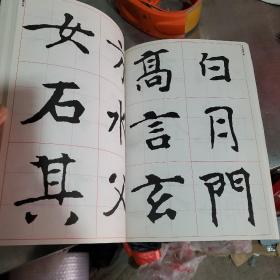 白月門
高言玄
方水父
女石其